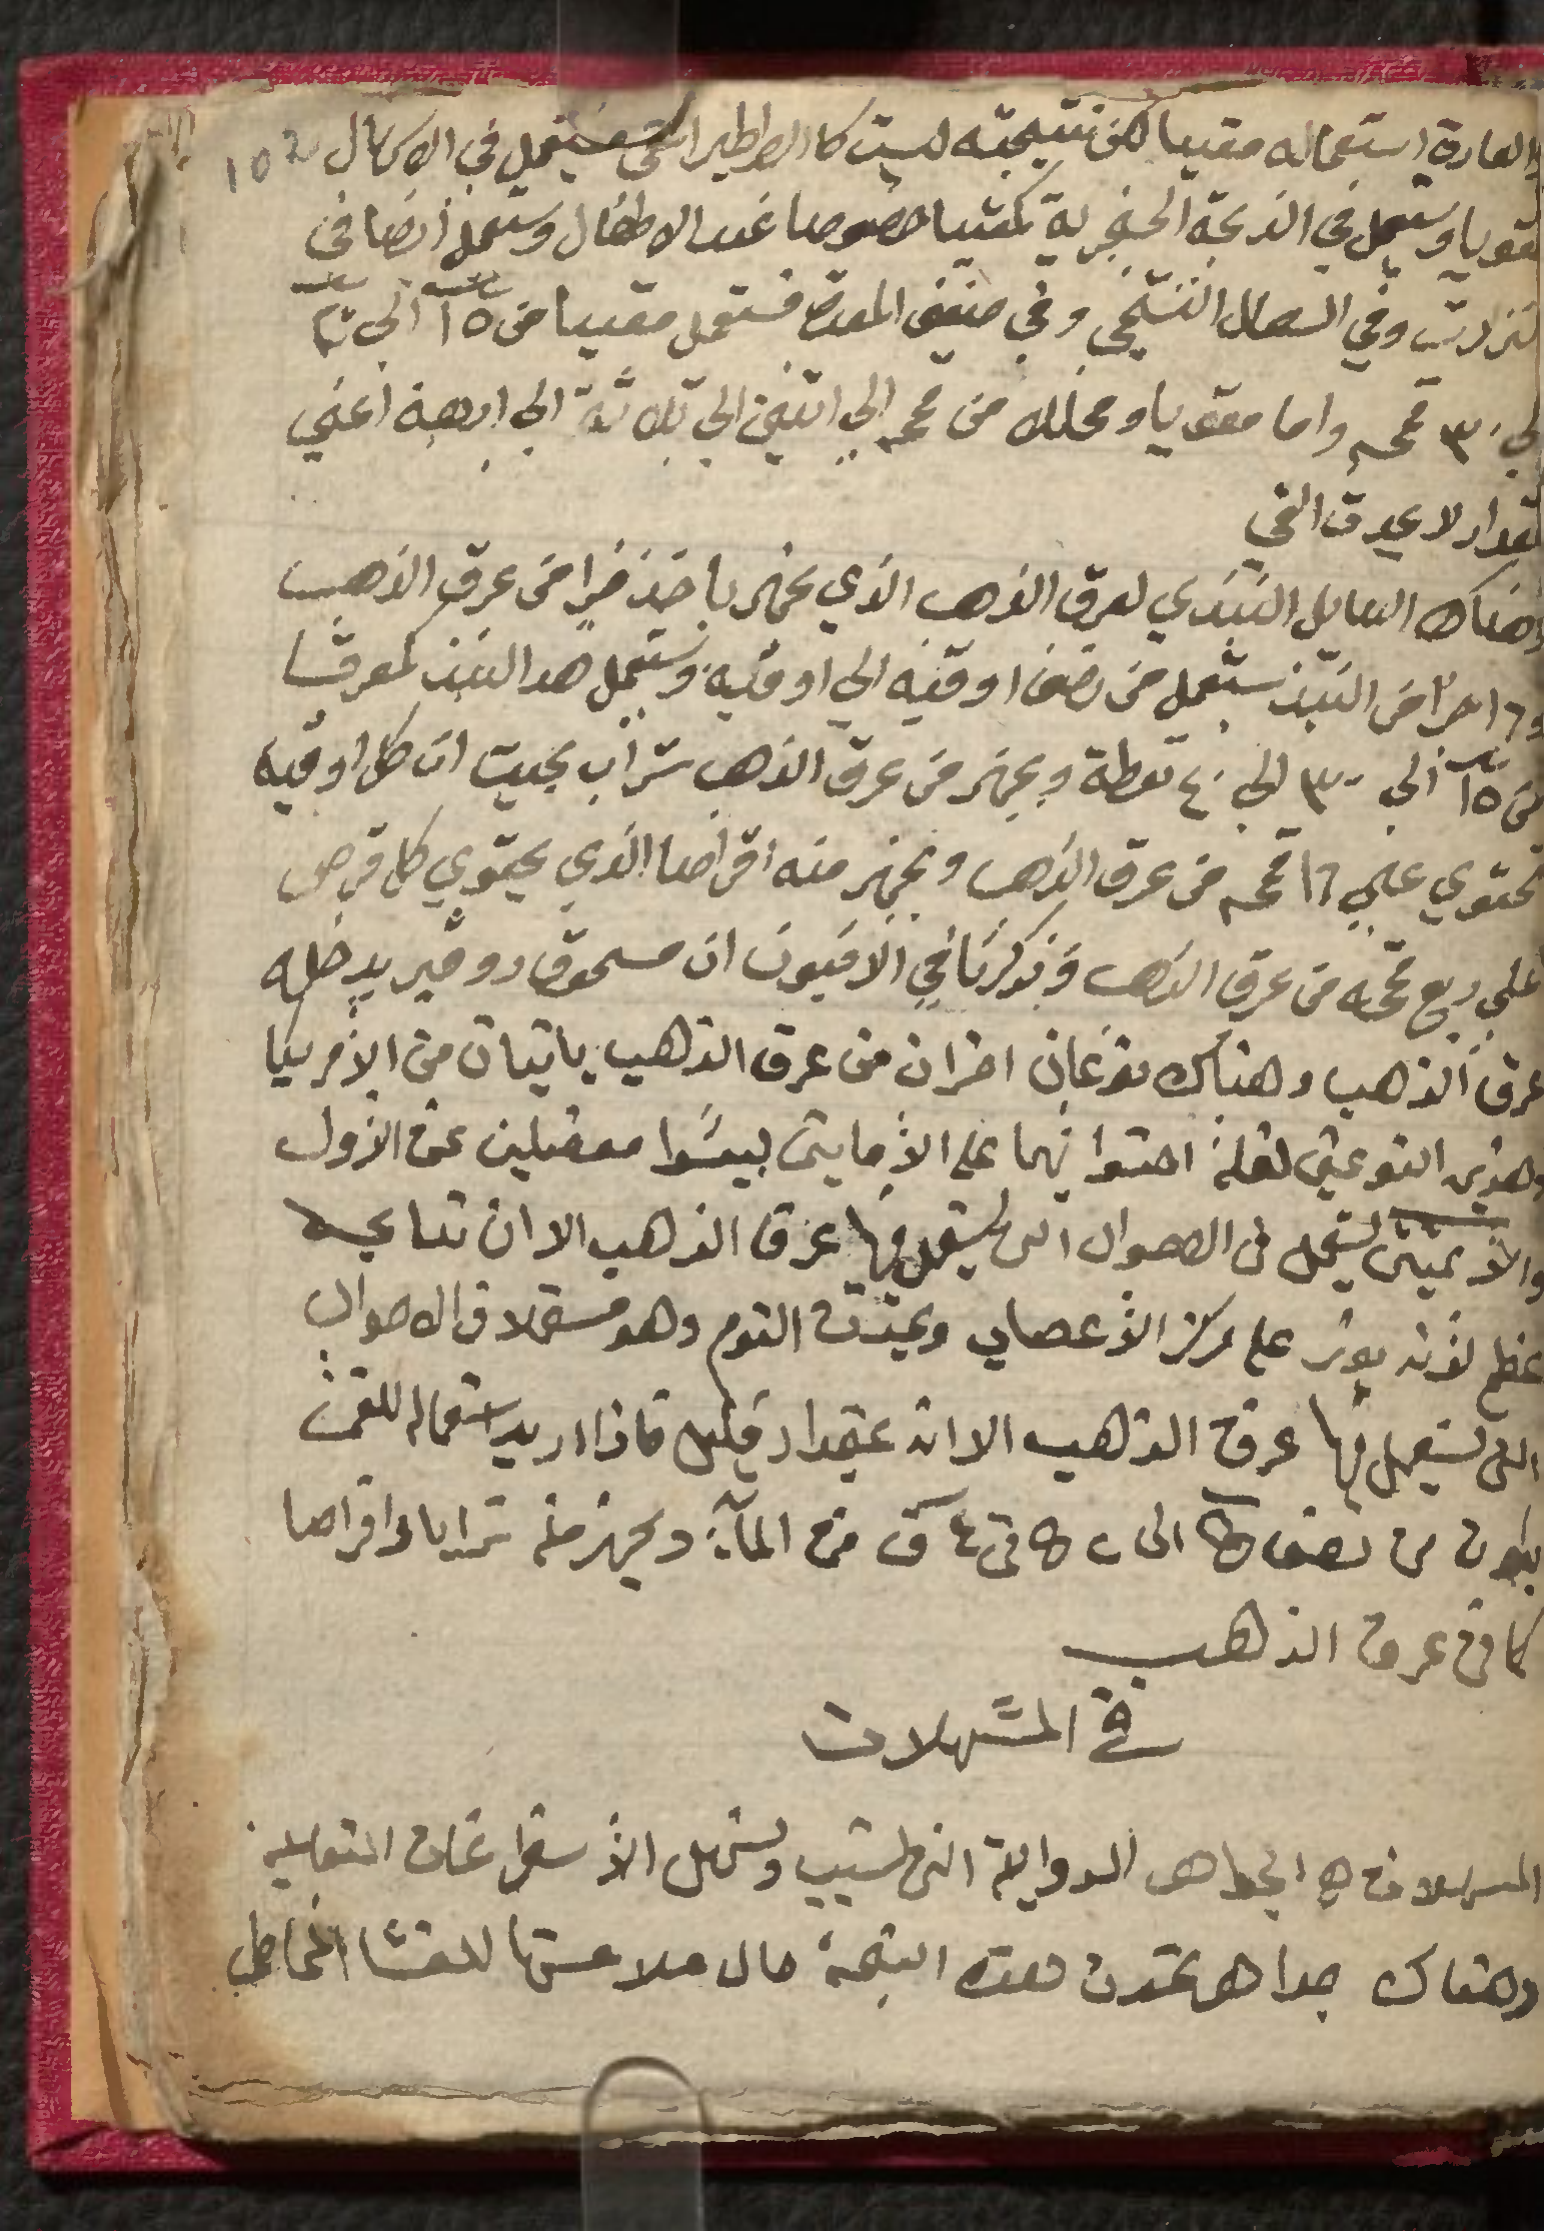 والعادة استعماله مقييا لكن نتيجته ليست كالطرطير المقي يستعمل في الاكال 102
مقويا ويستعمل في الذبحة الحنجرية بكثيرا خصوصا عند الاطفال ويستعمل ايضا في
النزلات وفي السعال التشنجي وفي ضعف المعدة فستعمل مقييا من ١٥ الي ٢٠
الي ٣٠ قمحه واما مقويا ومحللا من قمحه الي اثنين الي ثلاثة الي اربعة اعني
بمقدار لا يحدث القي
وهناك السايل النبيذي لعرق الذهب الذي يجهز باخذ جزا من عرق الذهب
و١٦ جزا من النبيذ يستعمل من نصف اوقيه الي اوقيه ويستعمل هدا النبيذ كمعرقا
من ١٥ الي ٣٠ الي ٤٠ نقطة ويجهز من عرق الذهب شراب بحيث ان كل اوقيه
تحتوي علي ١٦ قمحه من عرق الذهب ويجهز منه اقراصا الذي يحتوي كل قرص
علي ربع قمحه من عرق الذهب وذكرنا في الافيون ان مسحوق دوفير يدخله
عرق الذهب وهناك نوعان اخران من عرق الذهب ياتيان من الأمريكا
وهذين النوعين لقلة احتوائهما على الأمايتين ليسوا مفضلين عن الأول
والأيميتين يستعمل في الاحوال التي يستعمل فيها عرق الذهب الا ان نتايجه
عظم لأنه يوثر على مركز الأعصاب ويحدث النوم وهو مستعملا في الاحوال
التي يستعمل فيها عرق الذهب الا انه بمقدار قليل فاذا اريد استعماله للقي
يكون من نصف الى ٢ في ٤ ق من الماء ويجهز منه شرابا واقراصا
كما في عرق الذهب
في المسهلات
المسهلات هي الجواهر الدوايية التي تسبب وتسهل الأستفراغات الثفلية
وهناك جواهر تحدث هده النتيجة حال ملامستها للغشا المخاطي